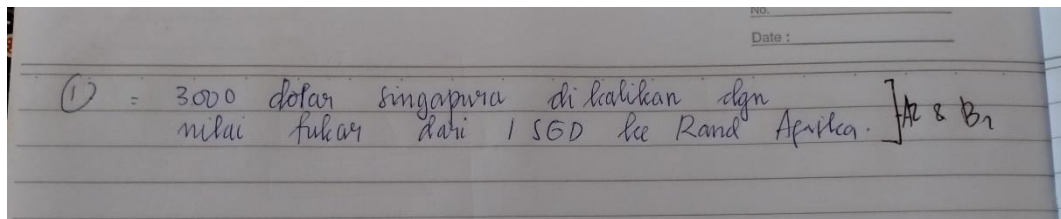 No.
Date :
① = 3000 dolar singapura di kalikan dgn
nilai tukar dari 1 SGD ke Rand Afrika. ] A2 & B2